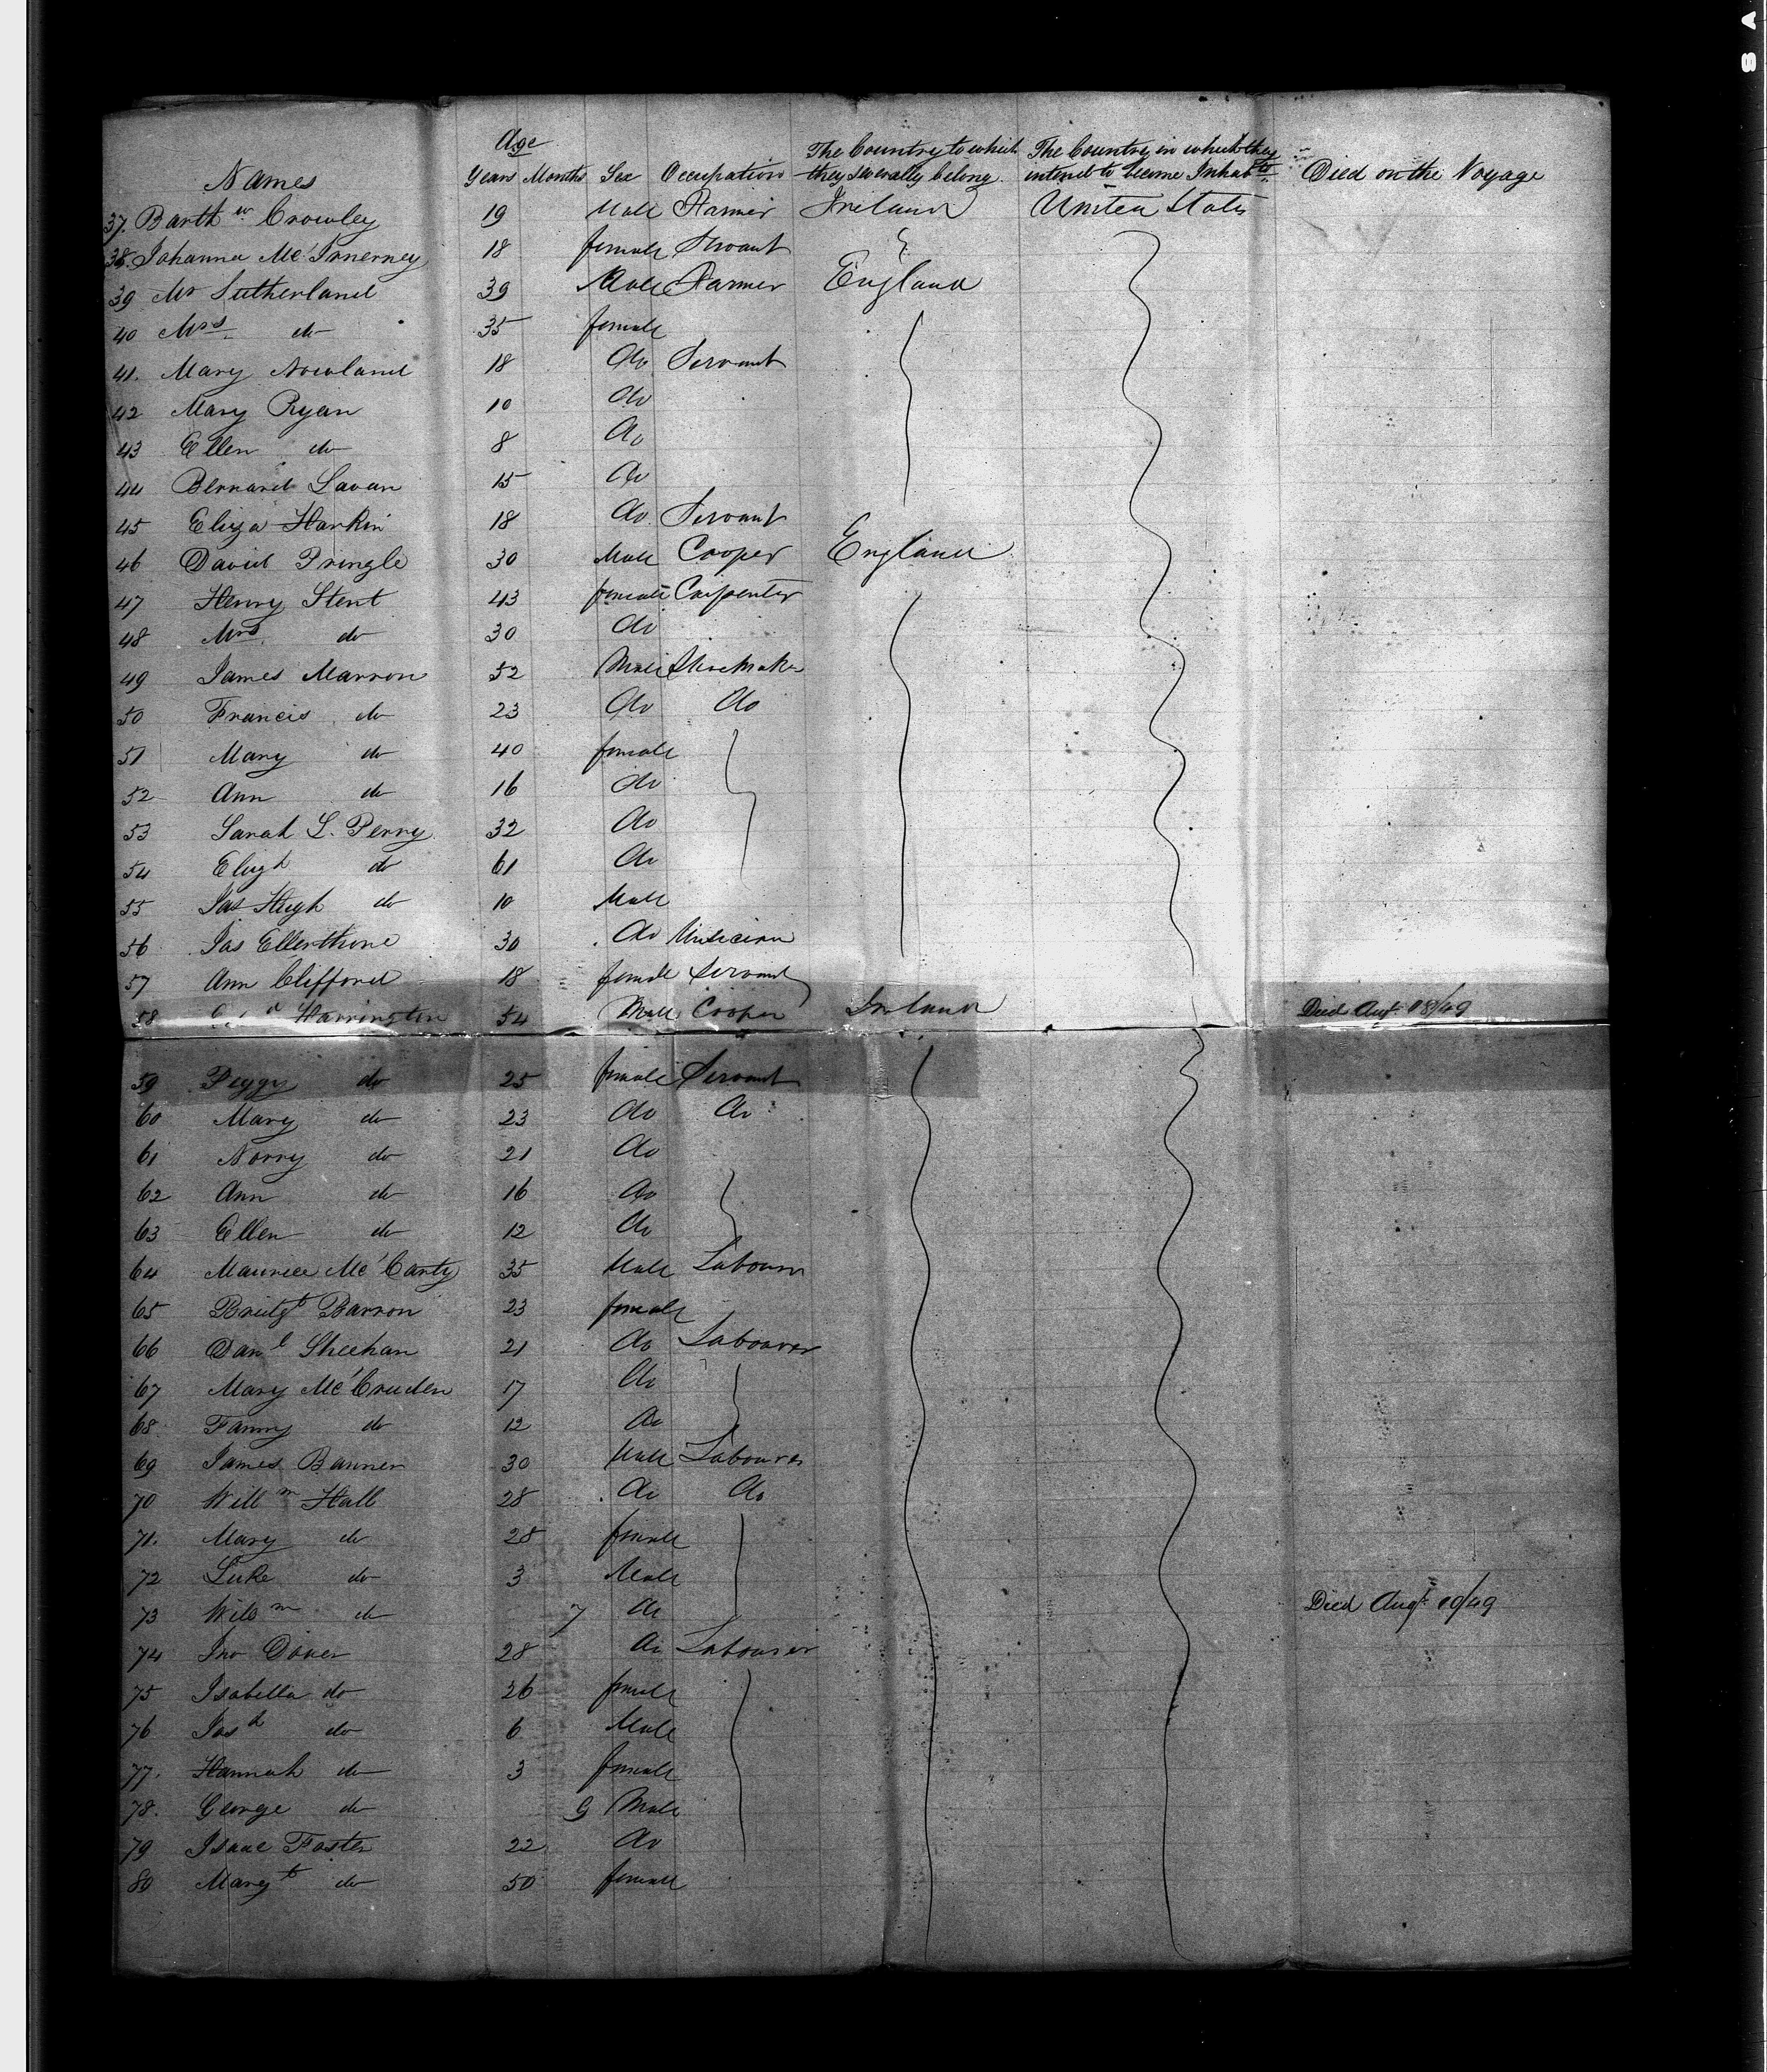 Age
Names Years Months Sex Occupation The Country to which they severally belong. The Country in which they intend to become Inhabts. Died on the Voyage
37. Barthw Crowley 19 Male Farmer Ireland United States
38. Johanna McInnerney 18 female Servant
39 Mr Sutherland 39 Male Farmer England
40 Mrs. do 35 female
41. Mary Nowland 18 do Servant
42 Mary Ryan 10 do
43 Ellen do 8 do
44 Bernard Lavan 15 do
45 Eliza Harkin 18 do Servant
46 David Pringle 30 Male Cooper England
47 Henry Stent 43 female Carpenter
48 Mrs. do 30 do
49 James Marron 52 Male Shoemaker
50 Francis do 23 do do
51 Mary do 40 female
52 Ann do 16 do
53 Sarah L. Perry 32 do
54 Elizh do 61 do
55 Jas Hugh do 10 Male
56 Jas Ellerthone 30 do Musician
57 Ann Clifford 18 female Servant
58 Harrington 54 Male Cooper Ireland Died Augt 18/49
59 Peggy do 25 female Servant
60 Mary do 23 do do
61 Norry do 21 do
62 Ann do 16 do
63 Ellen do 12 do
64 Maurice McCarty 35 Male Labourer
65 Bridgt Barron 23 female
66 Danl Sheehan 21 do Labourer
67 Mary McCruden 17 do
68 Fanny do 12 do
69 James Banner 30 Male Labourer
70 Willm Hall 28 do do
71. Mary do 28 female
72 Luke do 3 Male
73 Willm do 7 do Died Augt 10/49
74 Jno Dover 28 do Labourer
75 Isabella do 26 female
76 Josh do 6 Male
77. Hannah do 3 female
78. George do 9 Male
79 Isaac Foster 22 do
80 Margt do 50 female